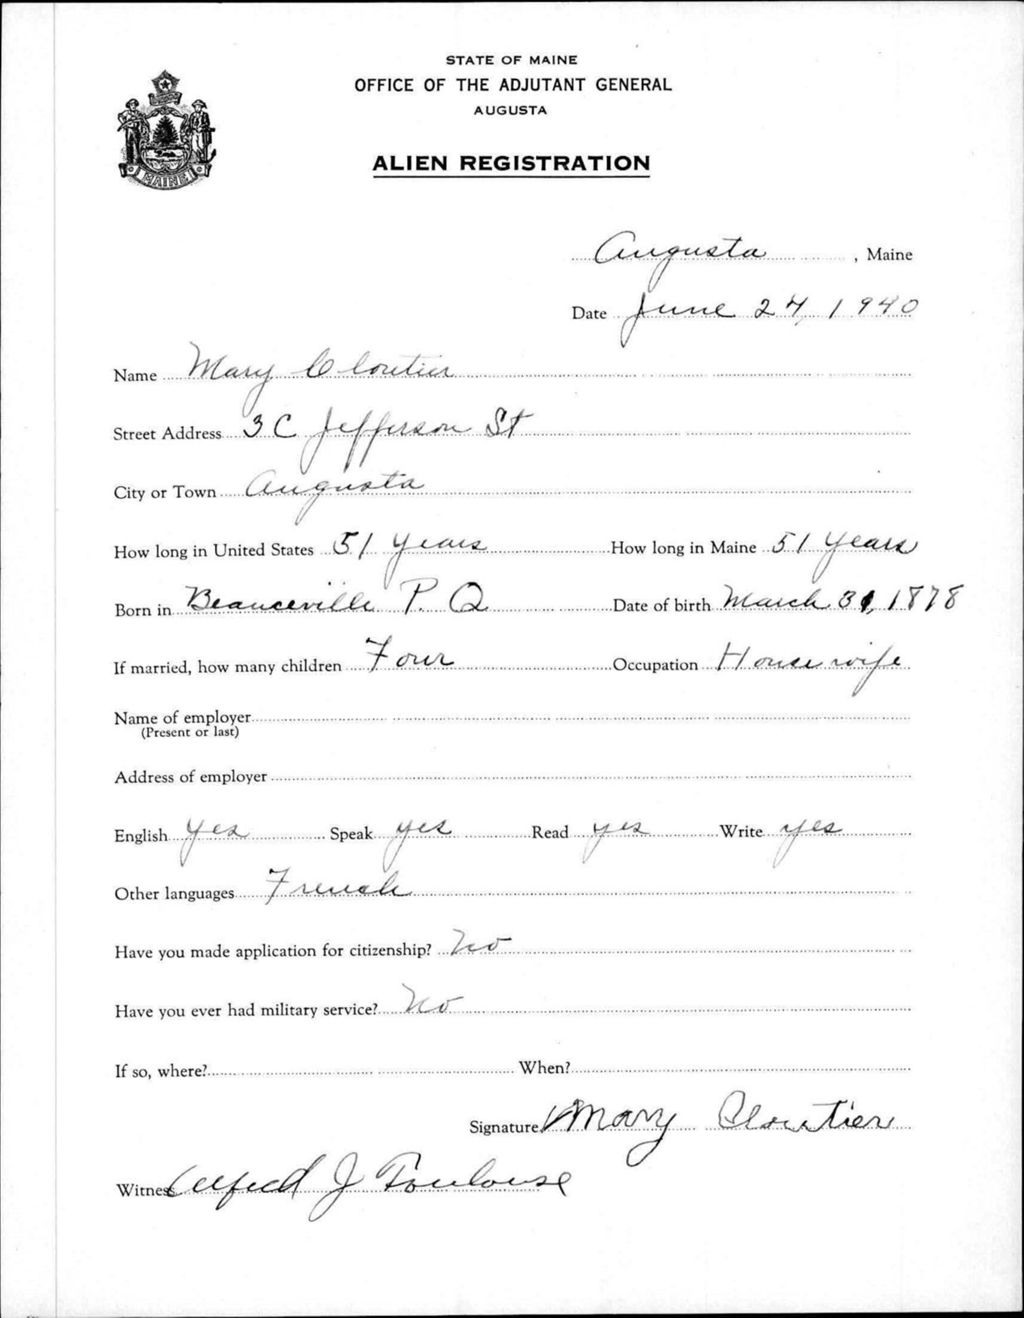 STATE OF MAINE
OFFICE OF THE ADJUTANT GENERAL
AUGUSTA
ALIEN REGISTRATION
MAINE
Augusta, Maine
Date June 24, 1940
Name Mary Cloutier
Street Address 3 C Jefferson St
City or Town Augusta
How long in United States 51 years How long in Maine 51 years
Born in Beauceville P. Q Date of birth March 31, 1878
If married, how many children Four Occupation Housewife
Name of employer
(Present or last)
Address of employer
English yes Speak yes Read yes Write yes
Other languages French
Have you made application for citizenship? No
Have you ever had military service? No
If so, where? When?
Signature Mary Cloutier
Witness Alfred J Toulouse